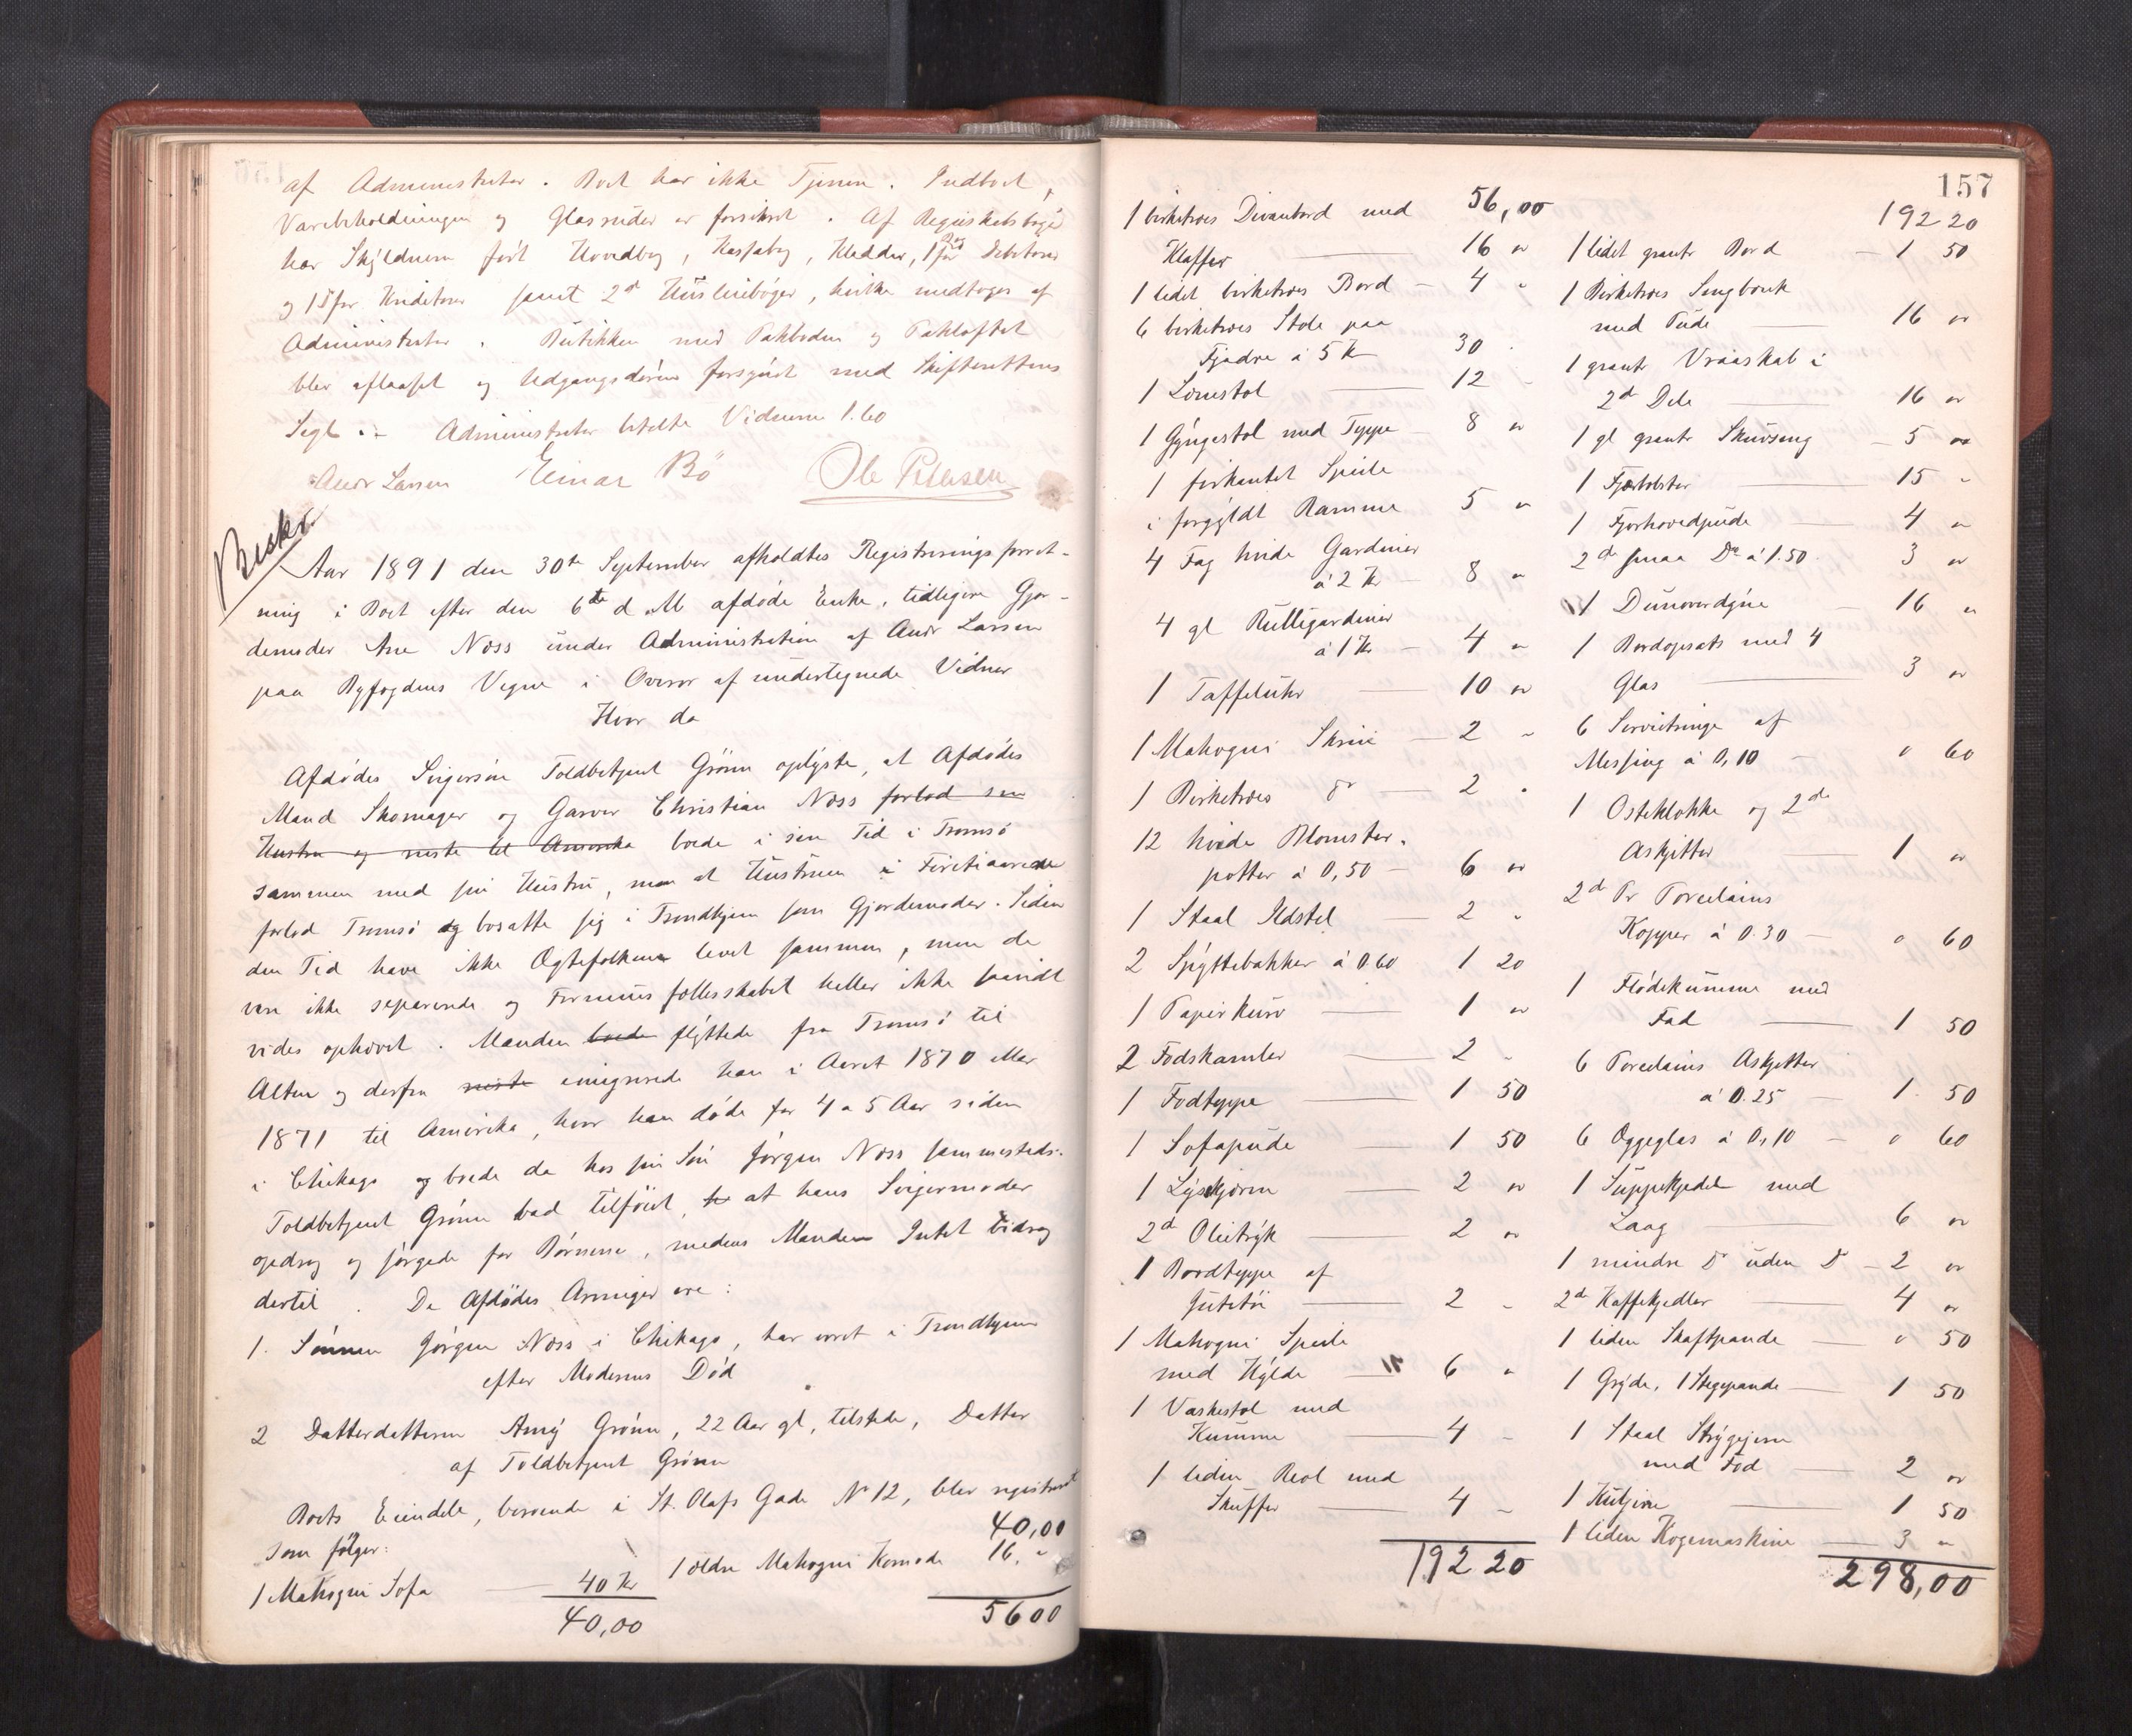 af Administrator. Boet har ikke Tjenere. Indboet,
Varebeholdningen og Glasruder er forsikret. Af Regnskabsbøger
har Skyldneren ført Hovedbog, Kassabog, Kladder, 1 Bog for Debitorer
og 1 D for Kreditorer samt 2d Husleiebøger, hvilke medtoges af
Administrator. Butikken med Pakboden og Pakloftet
blev aflaaset og Udgangsdøren forsynet med Skifterettens
Segl :- Administrator betalte Vidnerne 1.60
Andr Larsen Einar Bö Ole Petersen
Beskr.
Aar 1891 den 30te September afholdtes Registreringsforret-
ning i Boet efter den 6te d. M. afdøde Enke, tidligere Gjor-
demoder Ane Næss under Administration af Andr Larsen
paa Byfogdens Vegne i Overvær af undertegnede Vidner
Hvor da
Afdødes Svigersøn Toldbetjent Grönn oplyste, at Afdødes
Mand Skomager og Garver Christian Næss forlod sin
Hustru og reiste til Amerika boede i sin Tid i Tromsö
sammen med sin Hustru, men at Hustruen i Firetiaarene
forlod Tromsö og bosatte sig i Trondhjem som Gjordemoder. Siden
den Tid have ikke Ægtefolkene levet sammen, men de
vare ikke separerede og Formuesfællesskabet heller ikke saavidt
vides ophævet. Manden boede flyttede fra Tromsö til
Alten og derfra reiste emigrerede han i Aaret 1870 eller
1871 til Amerika, hvor han døde for 4 a 5 Aar siden
i Chikago og boede da hos sin Søn Jørgen Næss sammesteds.
Toldbetjent Grönn bad tilføiet, at hans Svigermoder
opdrog og sørgede for Børnene, medens Manden Intet bidrog
dertil. De Afdødes Arvinger ere:
1. Sønnen Jørgen Næss i Chikago, har været i Trondhjem
efter Moderens Død
2 Datterdatteren Amy Grönn, 22 Aar gl, tilstede, Datter
af Toldbetjent Grönn
Boets Eiendele, beroende i St. Olafs Gade No 12, blev registreret
som følger:
1 Mahogni Sofa 40 Kr
40,00
40,00
1 ældre Mahogni Komode 16. "
5600
157
1 birketræes Divanbord med 56,00
Klaffer 16 "
1 lidet birketræes Bord - 4 "
6 birketræes Stole paa
Fjædre à 5 Kr 30 "
1 Lænestol 12 "
1 Gyngestol med Teppe 8 "
1 firkantet Speile
i forgyldt Ramme 5 "
4 Fag hvide Gardiner
à 2 Kr - 8 "
4 gl Rullegardiner
à 1 Kr - 4 "
1 Taffeluhr 10 "
1 Mahogni Skrin - 2 "
1 Birketræes Do - 2 "
12 hvide Blomster-
potter à 0,50 - 6 "
1 Staal Ildstel 2 "
2 Spyttebakker à 0.60 1 20
1 Papirkurv 1 "
2 Fodskamler 2 "
1 Fodteppe 1 50
1 Sofapude 1 50
1 Lyseskjærm 2 "
2d Olietryk 2 "
1 Bordteppe af
Jutetøi 2 "
1 Mahogni Speile
med Hylde 6 "
1 Vaskestol med
Kumme 4 "
1 liden Reol med
Skuffer 4 "
192 20
192 20
1 lidet grant Bord - 1 50
1 Birketræes Sengbænk
med Pude 16 "
1 grant Vraaskab i
2d Dele 16 "
1 gl grant Skuvseng - 5 "
1 Fjærbolster 15 "
1 Fjærhovedpude 4 "
2d smaa Do à 1.50 3 "
1 Dunoverdyne 16 "
1 Bordopsats med 4
Glas 3 "
6 Servietringe af
Messing à 0,10 - " 60
1 Osteklokke og 2de
Asjetter 1 "
2d Pr Porcelains
Kopper à 0.30 - " 60
1 Flødekumme med
Fad 1 50
6 Porcelains Asjetter
à 0.25 - 1 50
6 Æggeglas à 0,10 - " 60
1 Suppekjedel med
Laag 6 "
1 mindre Do uden Do - 2 "
2d Kaffekjedler 4 "
1 liden Skaftpande - " 50
1 Gryde, 1 Stegepande - 1 50
1 Staal Strygejern
med Fod 2 "
1 1 50
1 liden Kogemaskine 3 "
298,00